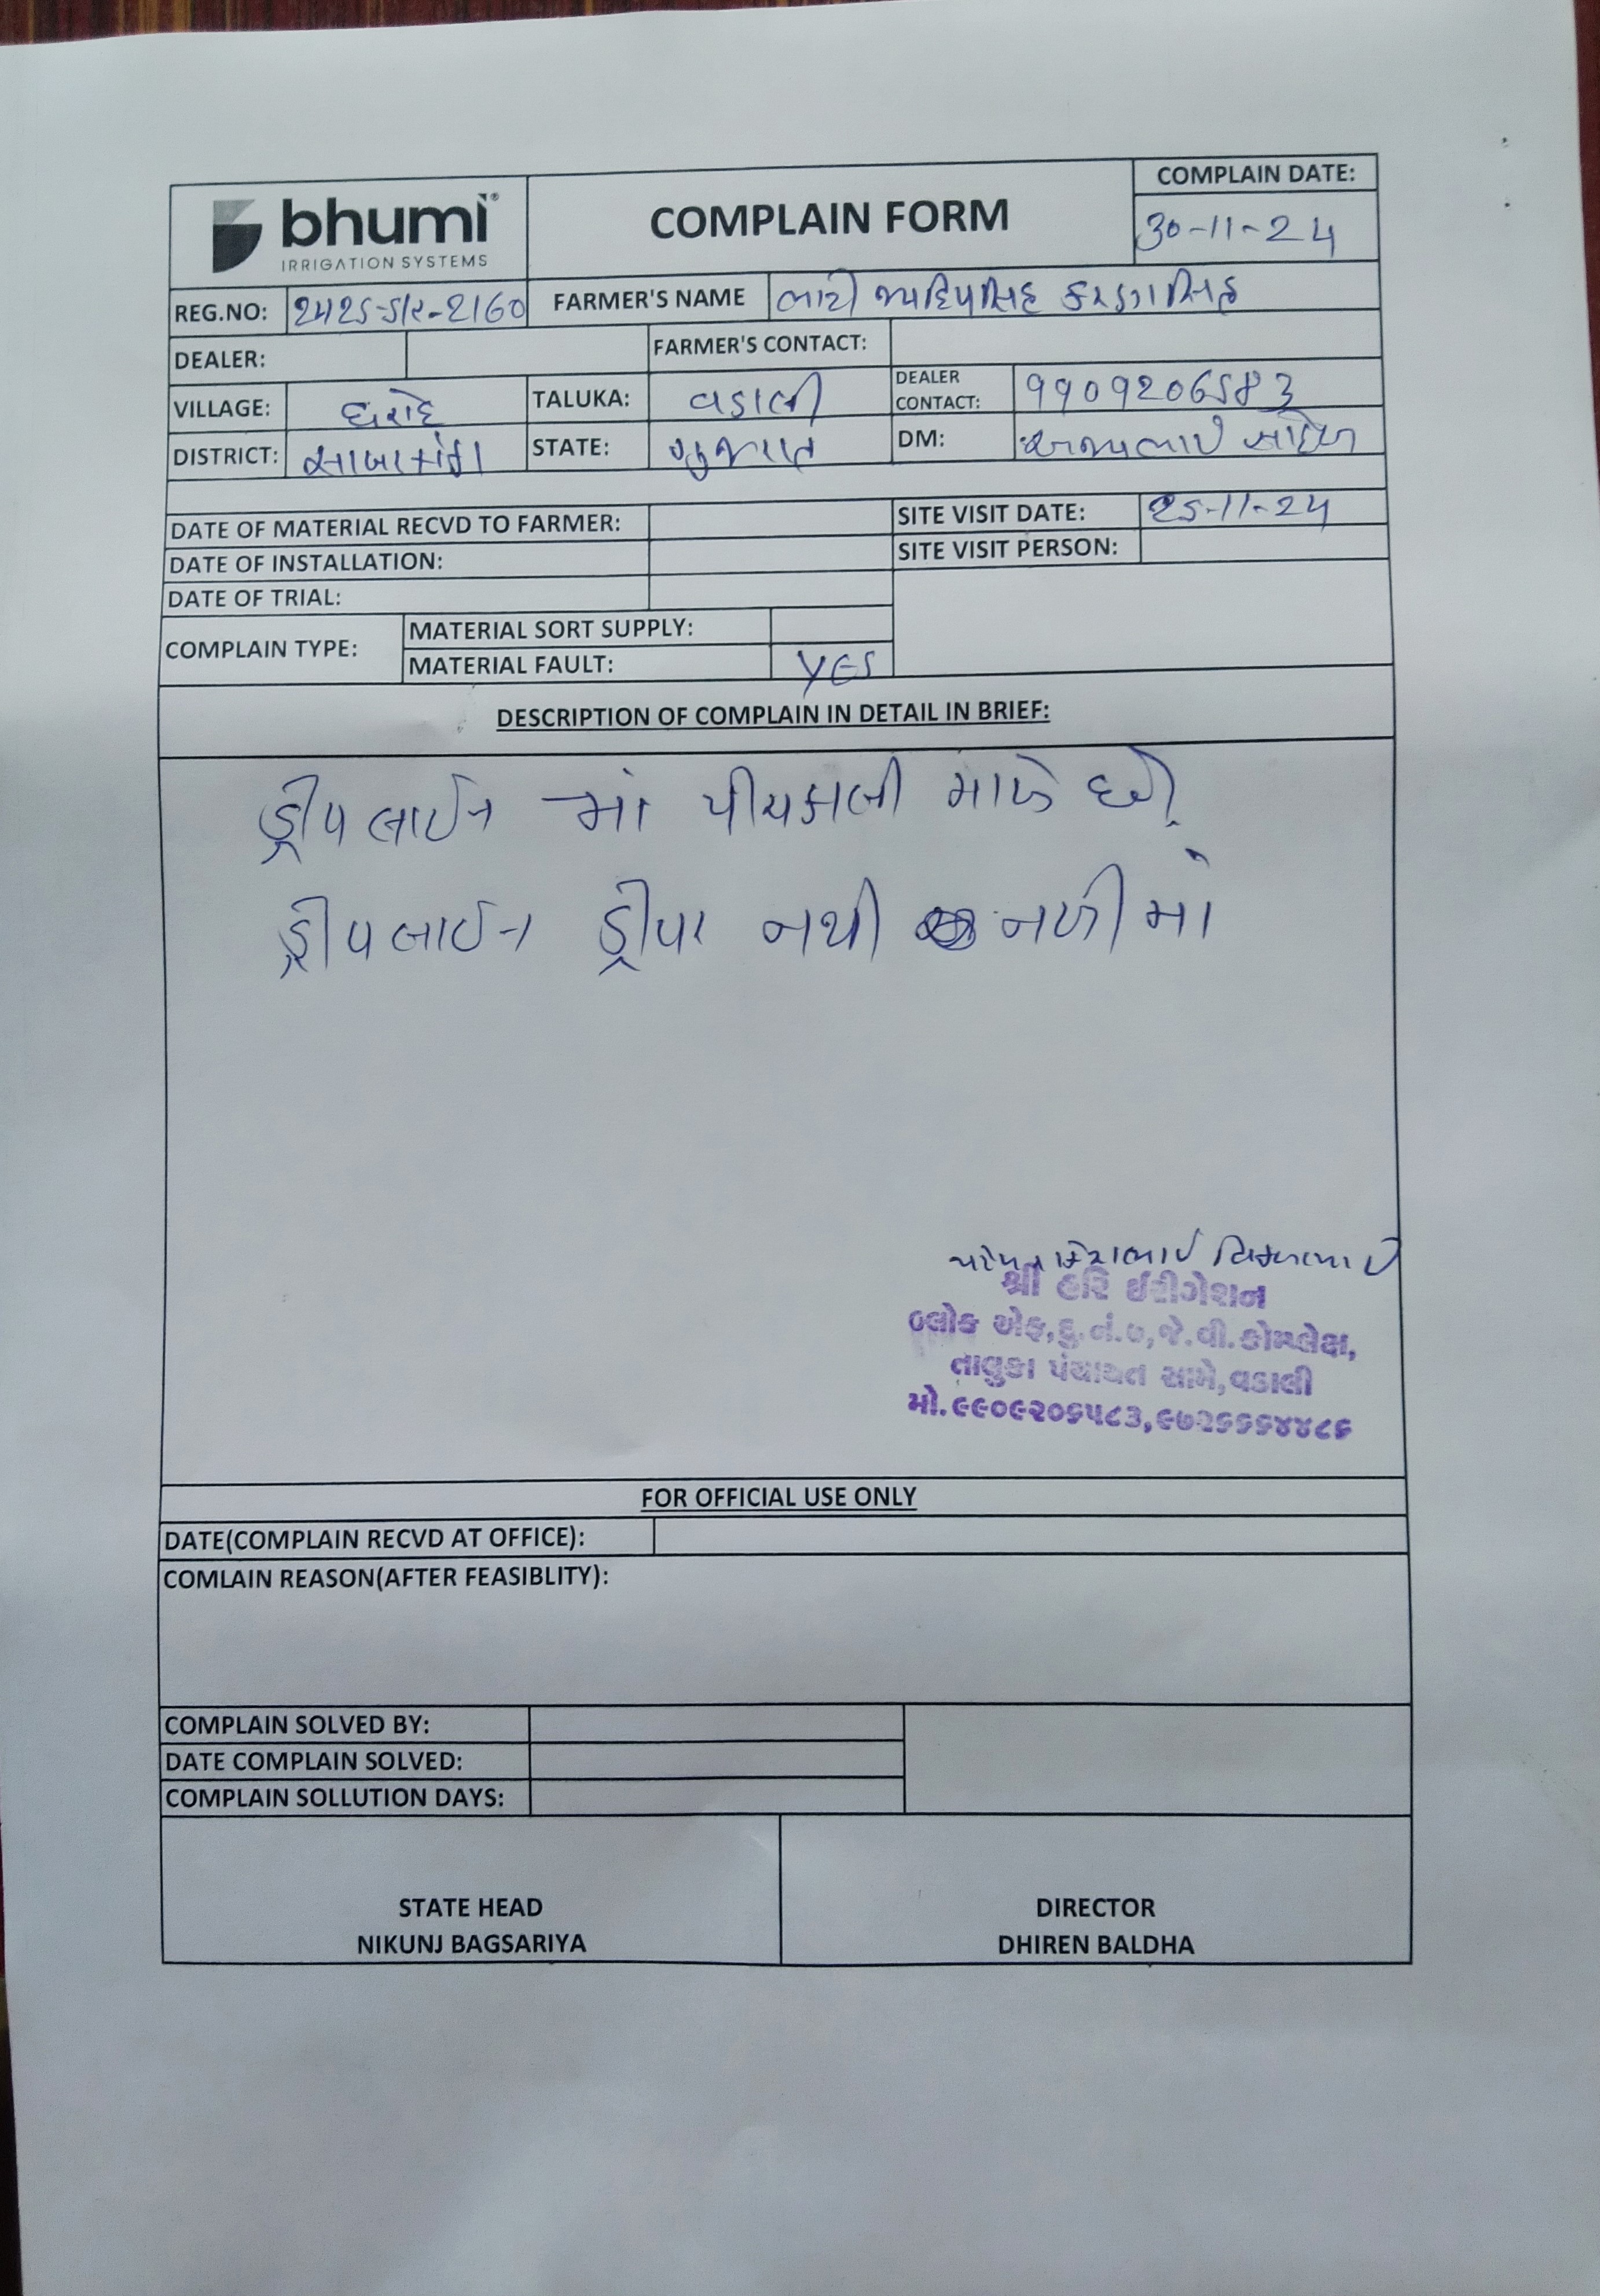 bhumi®
IRRIGATION SYSTEMS
COMPLAIN FORM
COMPLAIN DATE:
30-11-24
REG.NO: FARMER'S NAME ભાટી જયદિપસિંહ કરણસિંહ
DEALER: FARMER'S CONTACT:
VILLAGE: ધરોદ TALUKA: વડાલી DEALER CONTACT: 9909206583
DISTRICT: સાબરકાંઠા STATE: ગુજરાત DM:
DATE OF MATERIAL RECVD TO FARMER: SITE VISIT DATE: 25-11-24
DATE OF INSTALLATION: SITE VISIT PERSON:
DATE OF TRIAL:
COMPLAIN TYPE: MATERIAL SORT SUPPLY:
MATERIAL FAULT: YES
DESCRIPTION OF COMPLAIN IN DETAIL IN BRIEF:
ડ્રીપ લાઈન માં પીચકારી મારે છે.
ડ્રીપલાઈન ડ્રીપર નથી નળીમાં
શ્રી હરિ ઈરીગેશન
બ્લોક એફ,દુ.નં.૭,જે.વી.કોમ્પ્લેક્ષ,
તાલુકા પંચાયત સામે,વડાલી
મો.૯૯૦૯૨૦૬૫૮૩,૯૭૨૬૬૬૪૪૮૬
FOR OFFICIAL USE ONLY
DATE(COMPLAIN RECVD AT OFFICE):
COMLAIN REASON(AFTER FEASIBLITY):
COMPLAIN SOLVED BY:
DATE COMPLAIN SOLVED:
COMPLAIN SOLLUTION DAYS:
STATE HEAD DIRECTOR
NIKUNJ BAGSARIYA DHIREN BALDHA